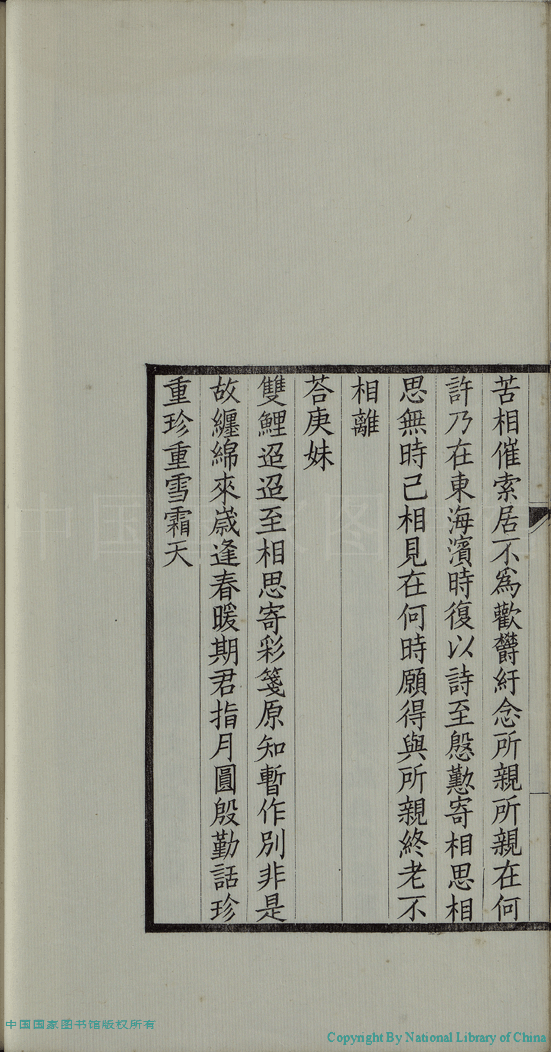 苦相催索居不為歡欝紆念所親所親在何
許乃在東海濱時復以詩至慇懃寄相思相
思無時已相見在何時願得與所親終老不
相離
荅庚妹
雙鯉迢迢至相思寄彩箋原知暫作別非是
故纏綿來歲逢春暖期君指月圓殷勤話珍
重珍重雪霜天
中国国家图书馆版权所有
Copyright By National Library of China